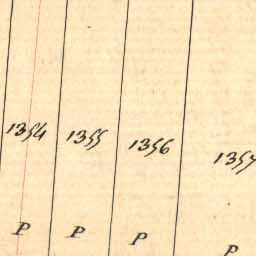 1354 1355 1356 1357
P P P P